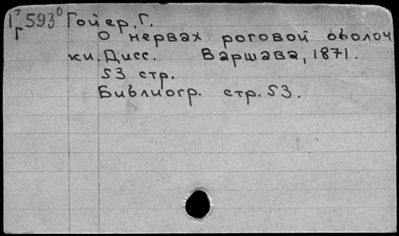 17/г 593⁰ Гойер, Г.
О нервах роговой оболоч
ки. Дисс. Варшава, 1871.
53 стр.
Библиогр. стр. 53.